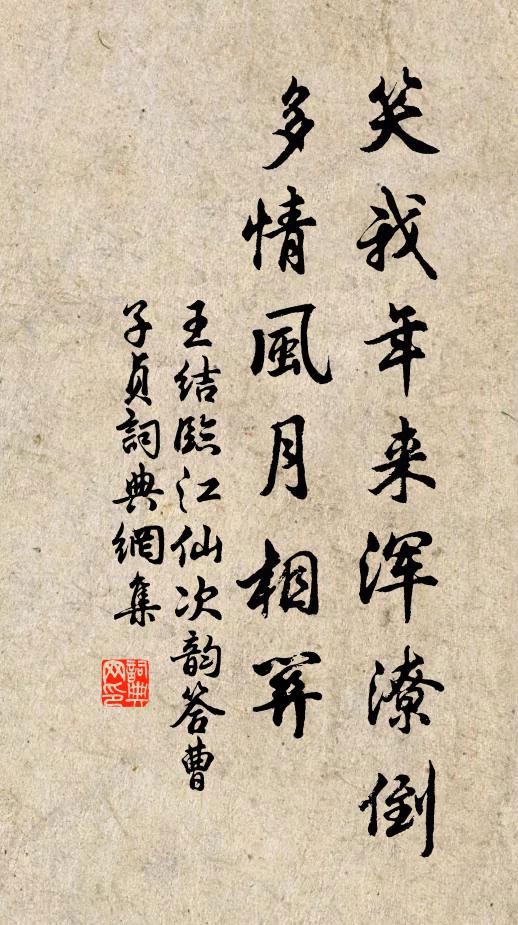 笑我年来渾潦倒
多情風月相关
王結臨江仙次韵答曹
子貞詞典網集
詞典网印